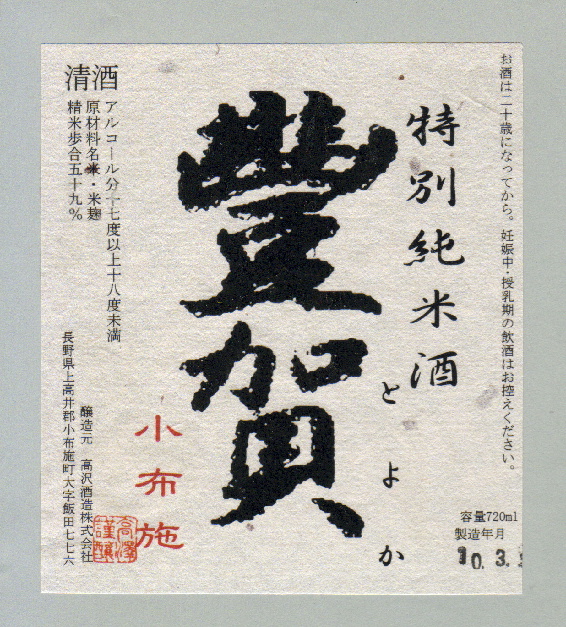 お酒は二十歳になってから。妊娠中・授乳期の飲酒はお控えください。
特別純米酒
とよか
豐賀
小布施
清酒
アルコール分十七度以上十八度未満
原材料名米・米麹
精米歩合五十九%
醸造元 高沢酒造株式会社
長野県上高井郡小布施町大字飯田七七六
容量720ml
製造年月
10.3.